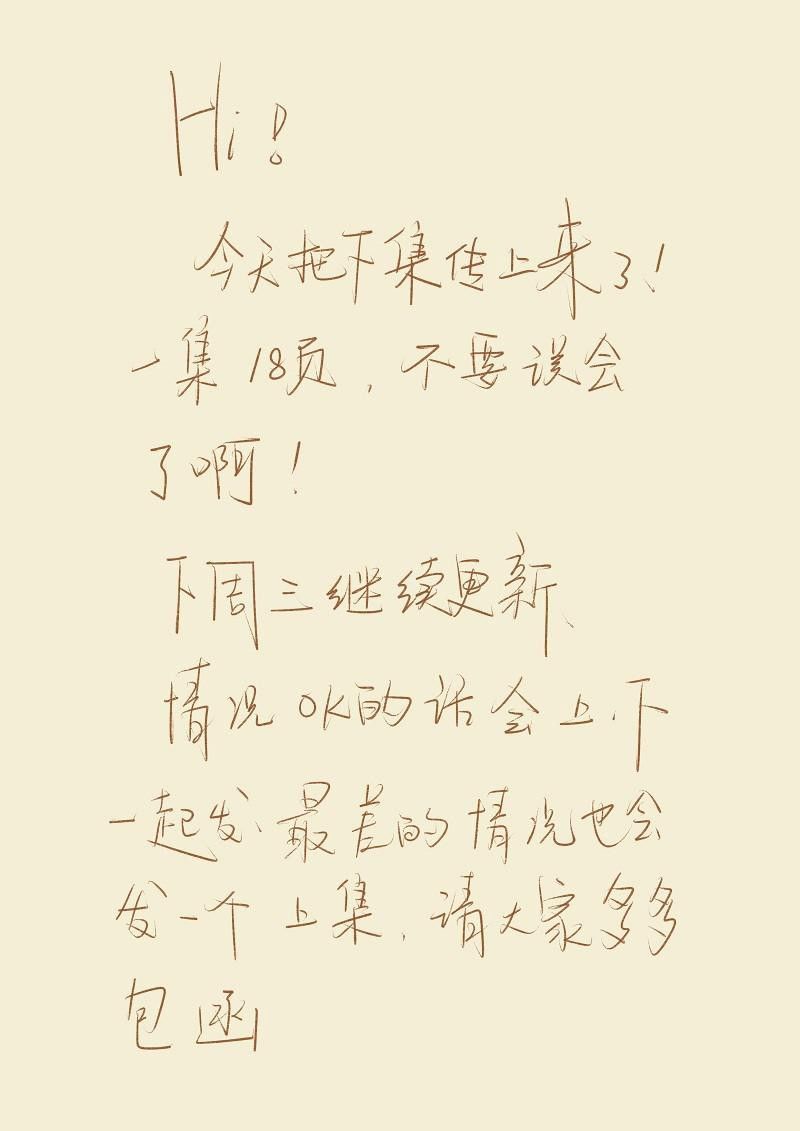 Hi!
今天把下集传上来了!
一集18页,不要误会
了啊!
下周三继续更新、
情况OK的话会上、下
一起发、最差的情况也会
发一个上集,请大家多多
包涵